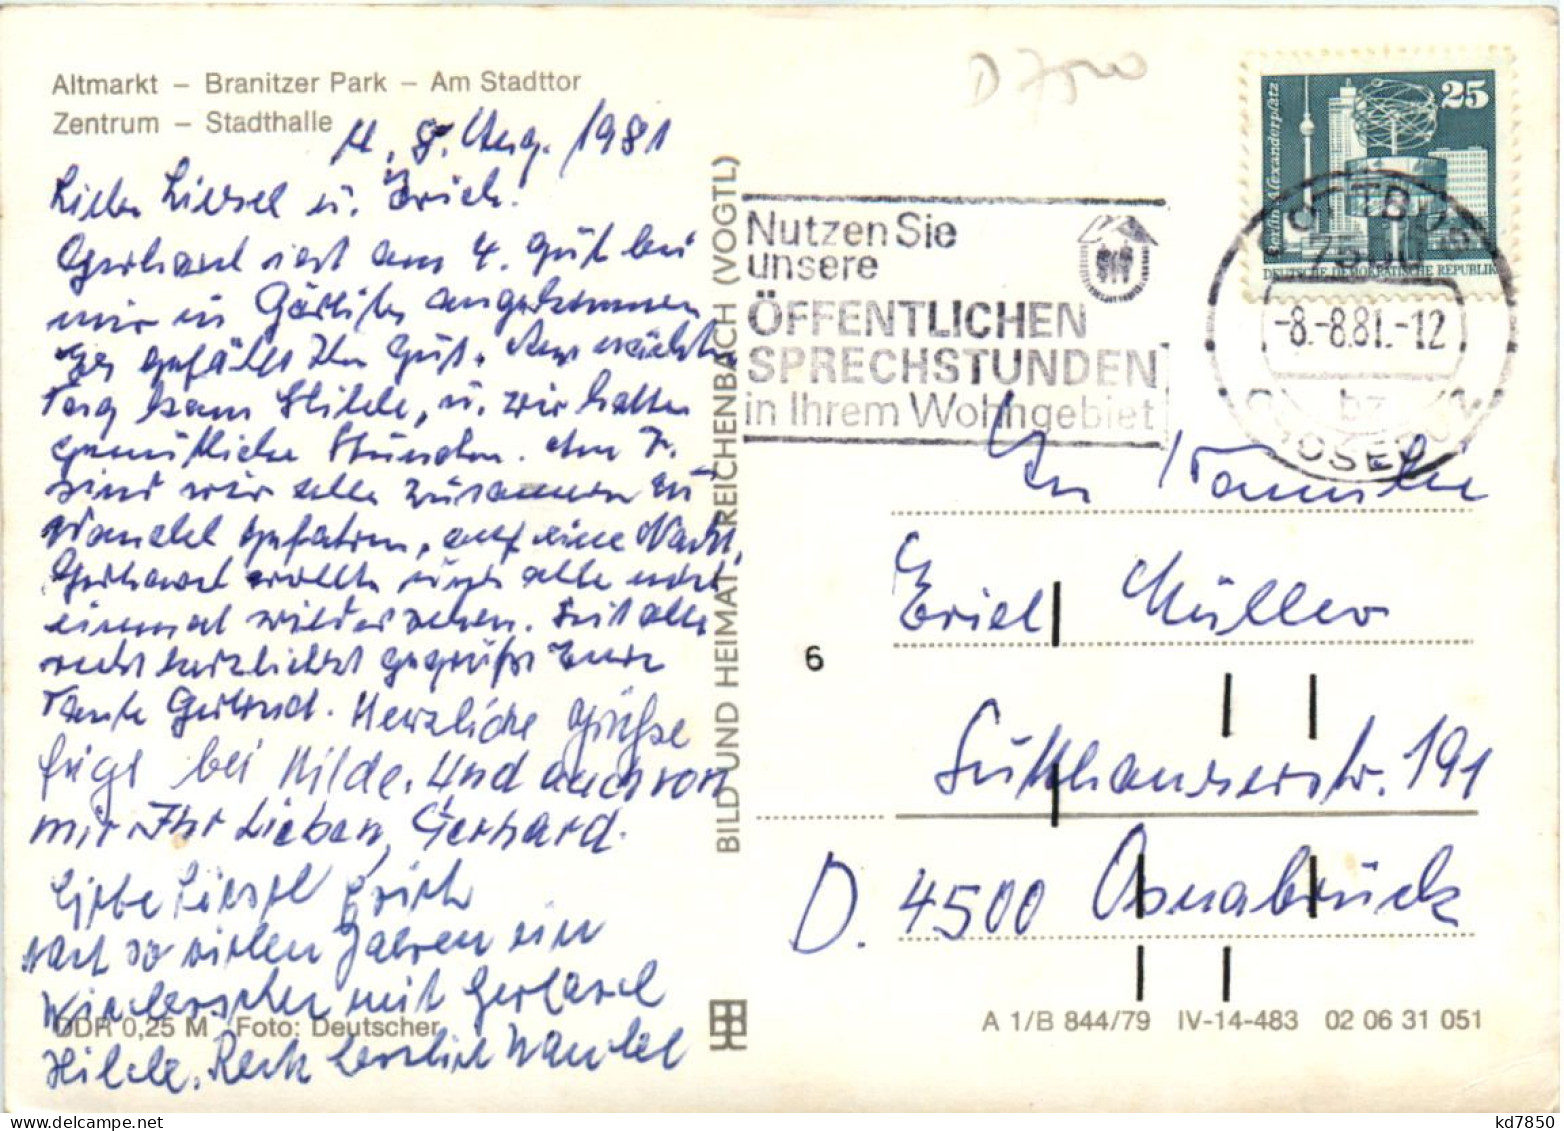 Altmarkt – Branitzer Park – Am Stadttor
Zentrum – Stadthalle
8. Aug. 1981
Liebe Liesel u. Erich!
Gerhard ist am 4. gut bei
mir in Görlitz angekommen
Es gefällt Ihm gut. Am nächsten
Tag kam Hilde, u. wir hatten
gemütliche Stunden. Am 7.
sind wir alle zusammen zu
Wandel gefahren, auf eine Nacht,
Gerhard wollte uns alle mal
einmal wiedersehen. Seid alle
recht herzlichst gegrüßt Eure
Tante Gertrud. Herzliche Grüße
fügt bei Hilde. Und auch von
mir Ihr Lieben, Gerhard.
Liebe Liesel Erich
nach so vielen Jahren ein
Wiedersehen mit Gerhard
Hilde. Recht herzlich Wandel
DDR 0,25 M Foto: Deutscher
BILD UND HEIMAT REICHENBACH (VOGTL)
D 7500
Nutzen Sie
unsere
ÖFFENTLICHEN
SPRECHSTUNDEN
in Ihrem Wohngebiet
25
Berlin-Alexanderplatz
DEUTSCHE DEMOKRATISCHE REPUBLIK
COTTBUS
7500
-8.-8.81.-12
bz
CHOSEBUZ
An Familie
Erich Müller
6
Sutthauserstr. 191
D. 4500 Osnabrück
A 1/B 844/79 IV-14-483 02 06 31 051
www.delcampe.net
kd7850